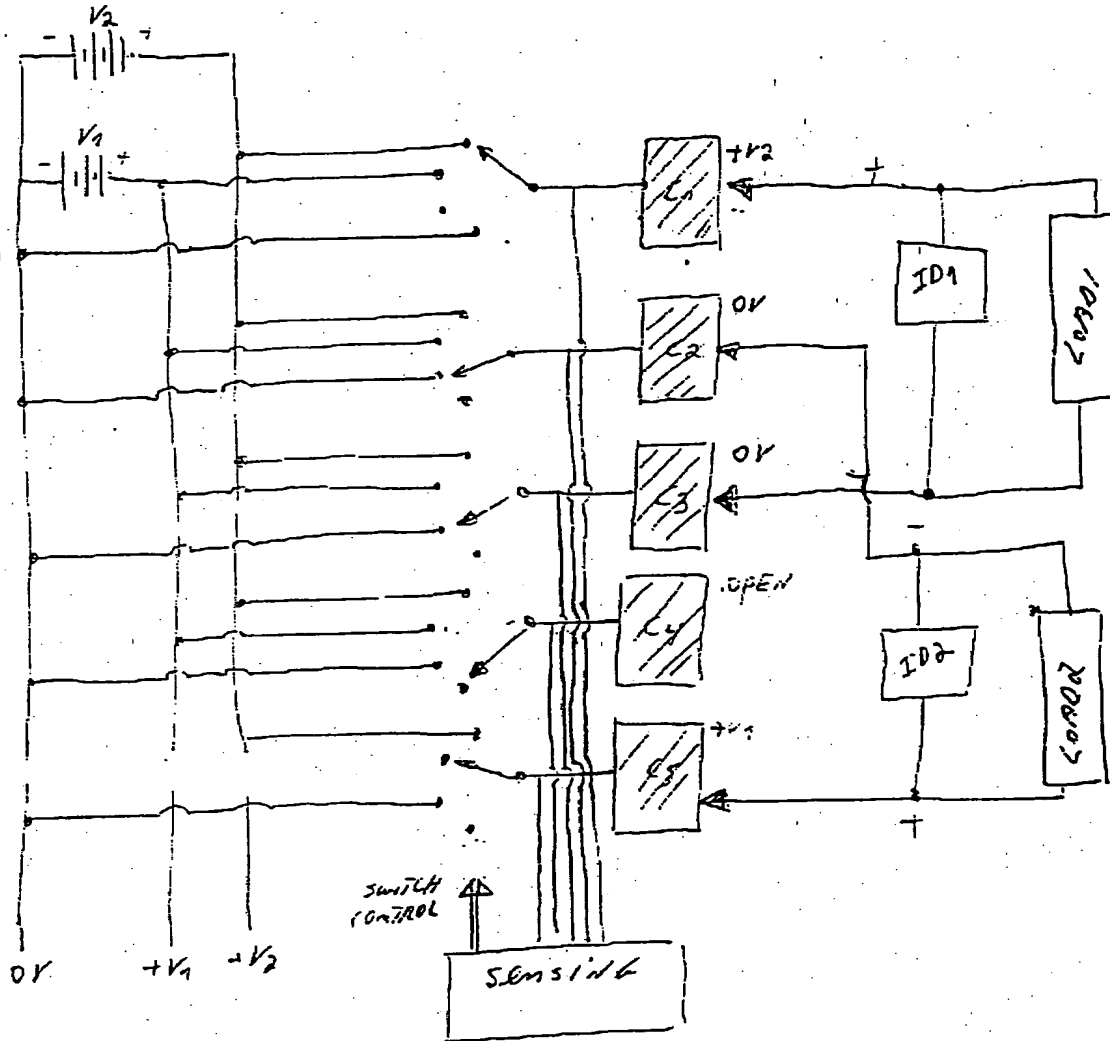 V2
- +
V1
- +
C1
+V2
+
ID1
LOAD1
C2
0V
C3
0V
-
C4
OPEN
ID2
LOAD2
C5
+V1
+
SWITCH
CONTROL
0V
+V1
+V2
SENSING